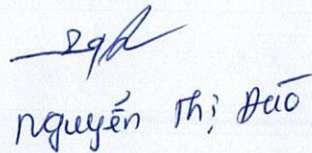 Nguyễn Thị Đào